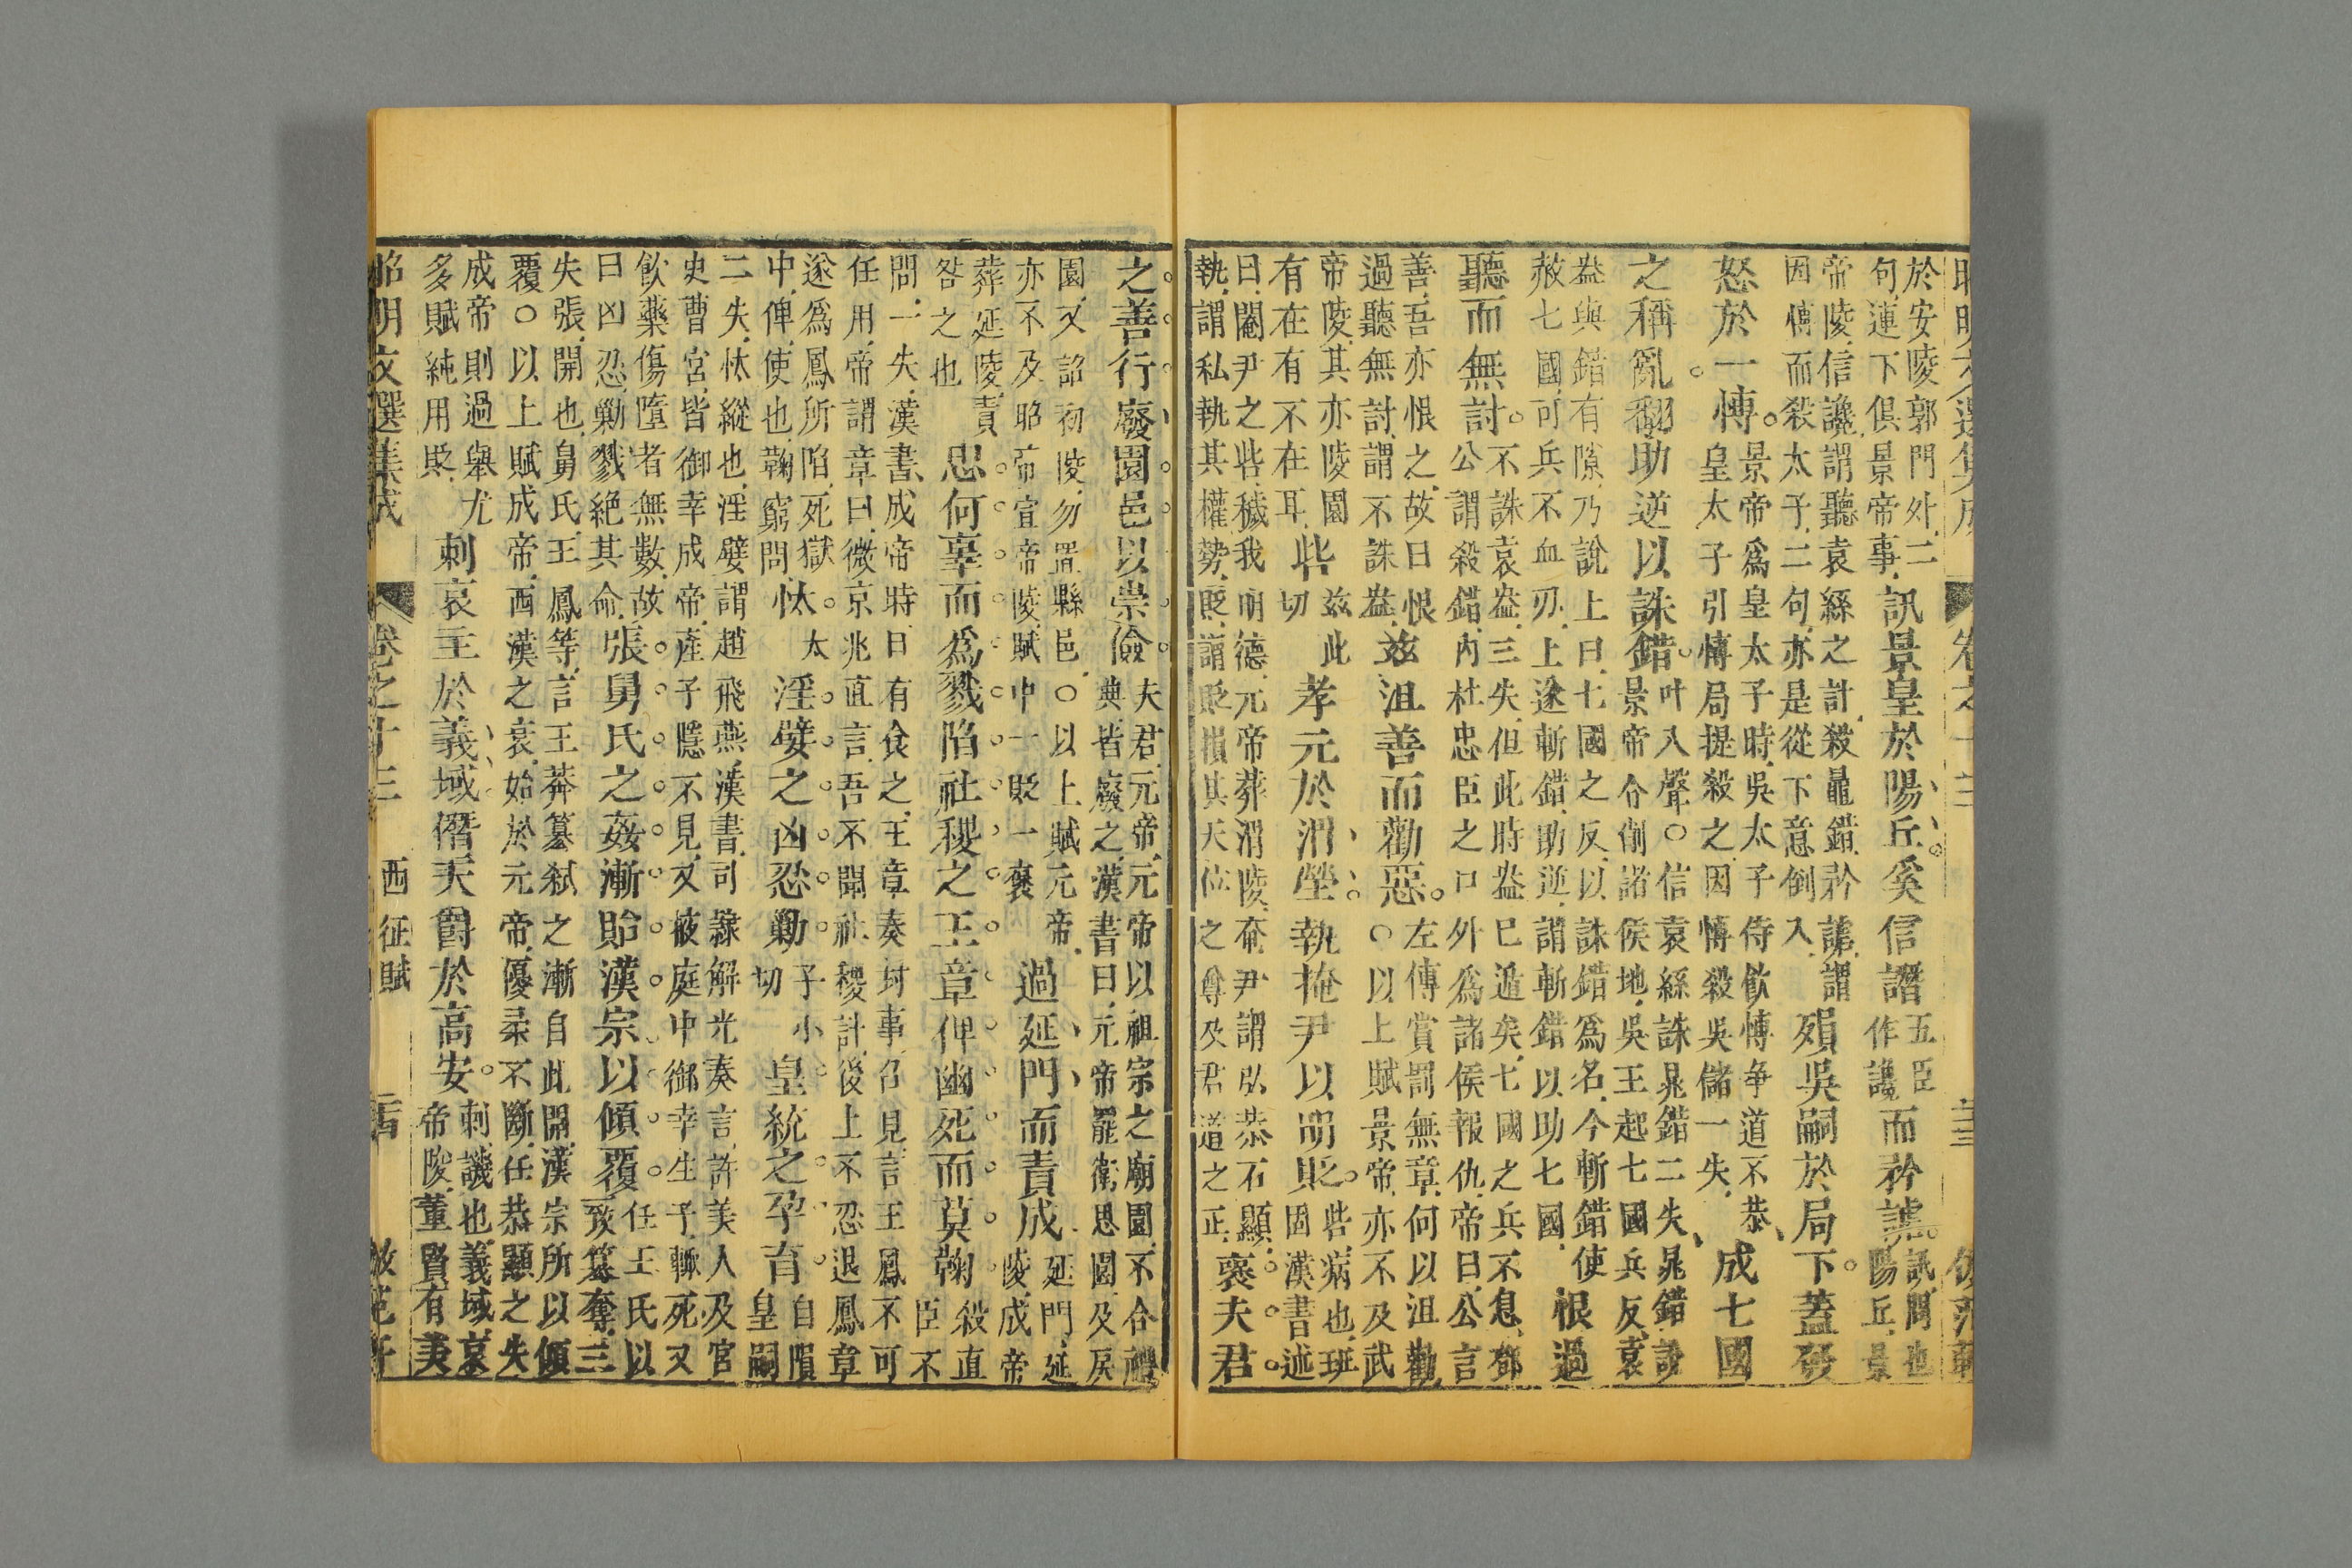 於安陵郭門外二
句連下俱景帝事訊景皇於陽丘奚信譖五臣作讒而矜謔訊問也陽丘景
帝陵信讒謂聽袁絲之計殺鼂錯矜謔謂
因愽而殺太子二句亦是從下意倒入殞吳嗣於局下蓋發
怒於一愽景帝爲皇太子時吳太子侍飲愽爭道不恭皇太子引愽局提殺之因愽殺吳儲一失成七國
之稱亂翻助逆以誅錯叶入聲○信袁絲誅晁錯二失晁錯說景帝令削諸侯地吳王起七國兵反袁
盎與錯有隙乃說上曰七國之反以誅錯爲名今斬錯使
赦七國可兵不血刃上遂斬錯助逆謂斬錯以助七國恨過
聽而無討不誅袁盎三失但此時盎已遁矣七國之兵不息鄧公謂殺錯內杜忠臣之口外爲諸侯報仇帝曰公言
善吾亦恨之故曰恨
過聽無討謂不誅盎茲沮善而勸惡左傳賞罰無章何以沮勸○以上賦景帝亦不及武
帝陵其亦陵園茲此
有在有不在耳呰切孝元於渭塋執掩尹以明貶呰病也班固漢書述
曰閹尹之呰穢我明德元帝葬渭陵奄尹謂弘恭石顯
執謂私執其權勢貶謂貶損其天位之尊及君道之正褒夫君
之善行廢園邑以崇儉夫君元帝元帝以祖宗之廟園不合禮典皆廢之漢書曰元帝罷衛思園及戾
園又詔初陵勿置縣邑○以上賦元帝
亦不及昭帝宣帝陵賦中一貶一褒過延門而責成延門延陵成帝
葬延陵責
咎之也忠何辜而爲戮陷社稷之王章俾幽死而莫鞠殺直臣不
問一失漢書成帝時日有食之王章奏封事召見言王鳳不可
任用帝謂章曰微京兆直言吾不聞社稷計後上不忍退鳳章
遂爲鳳所陷死獄
中俾使也鞠窮問忲太淫嬖之凶忍勦子小切皇統之孕育自隕皇嗣
二失忲縱也淫嬖謂趙飛燕漢書司隸解光奏言許美人及宮
史曹宮皆御幸成帝產子隱不見又掖庭中御幸生子輒死又
飲藥傷墮者無數故
曰凶忍勦戮絕其命張舅氏之姦漸貽漢宗以傾覆任王氏以致篡奪三
失張開也舅氏王鳳等言王莽篡弒之漸自此開漢宗所以傾
覆○以上賦成帝西漢之衰始於元帝優柔不斷任恭顯之失
成帝則過舉尤
多賦純用貶刺哀主於義域僭天爵於高安刺譏也義域哀帝陵董賢有美
昭明文選集成 卷之十三 西征賦